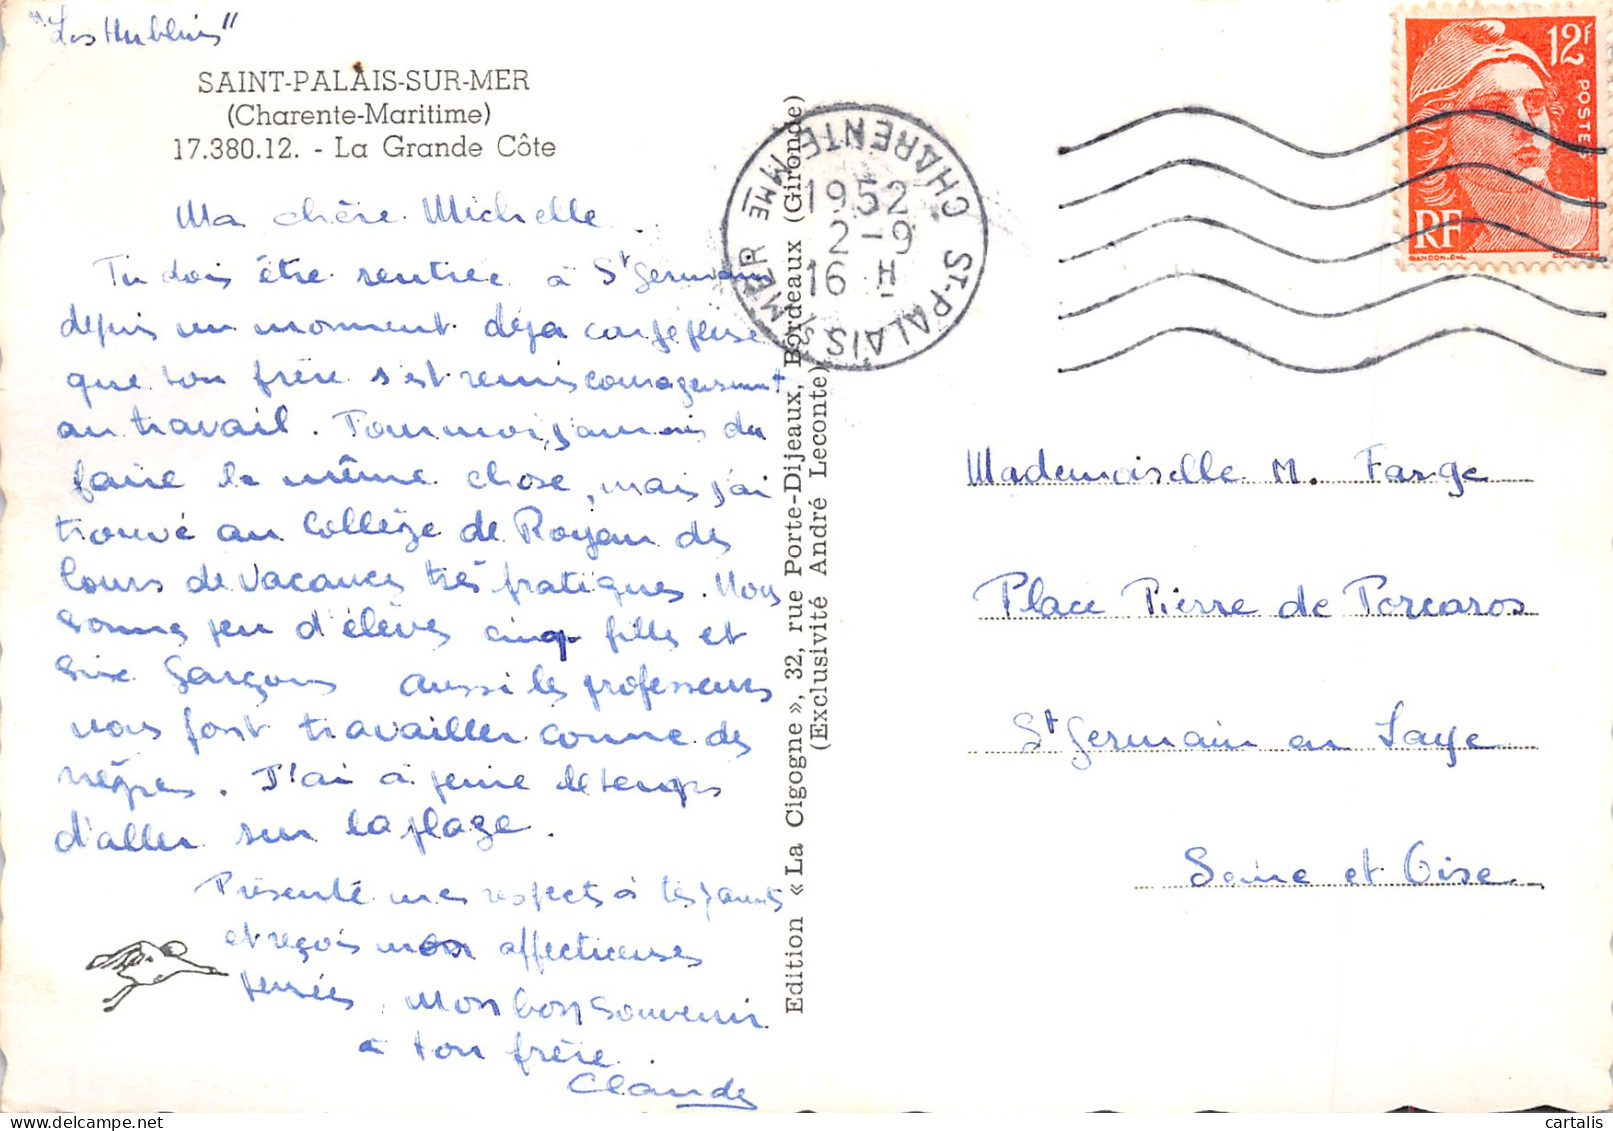 "Les Hublins"
SAINT-PALAIS-SUR-MER
(Charente-Maritime)
17.380.12. - La Grande Côte
Ma chère Michelle
Tu dois être rentrée à St Germain
depuis un moment déja
que ton frère s'est remis courageusement
au travail. Pour moi j'aurais du
faire la même chose, mais j'ai
trouvé au Collège de Royan des
Cours de Vacances très pratiques. Nous
sommes peu d'élèves cinq filles et
six garçons aussi les professeurs
nous font travailler comme des
nègres. J'ai à peine le temps
d'aller sur la plage.
Présente mes respects à tes parents
et reçois mon affectueuses
pensées. Mon bon souvenir
à ton frère.
Claude
Edition « La Cigogne », 32, rue Porte-Dijeaux, Bordeaux (Gironde)
(Exclusivité André Leconte)
ST-PALAIS S/ MER CHARENTE Mme
1952
2-9
16 H
12F
POSTES
RF
GANDON.DEL
Mademoiselle M. Farge
Place Pierre de Porcaros
St Germain en Laye
Seine et Oise
cartalis